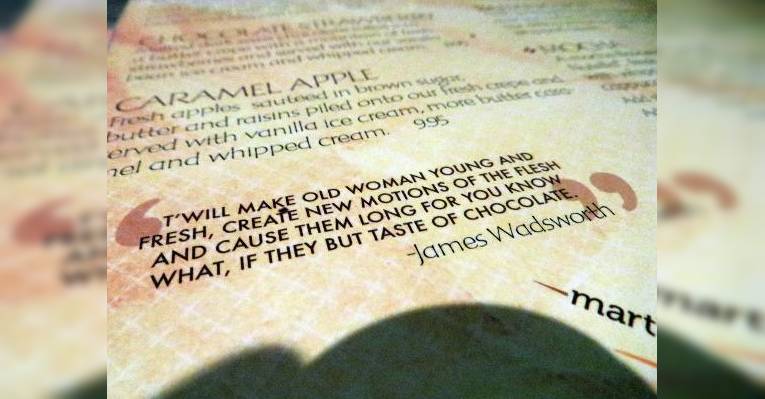 CHOCOLATE STRAWBERRY
CARAMEL APPLE
Fresh apples sauteed in brown sugar,
butter and raisins piled onto our fresh crepe and
served with vanilla ice cream, more butter cara-
mel and whipped cream. 9.95
“T'WILL MAKE OLD WOMAN YOUNG AND
FRESH, CREATE NEW MOTIONS OF THE FLESH
AND CAUSE THEM LONG FOR YOU KNOW
WHAT, IF THEY BUT TASTE OF CHOCOLATE.”
-James Wadsworth
mart